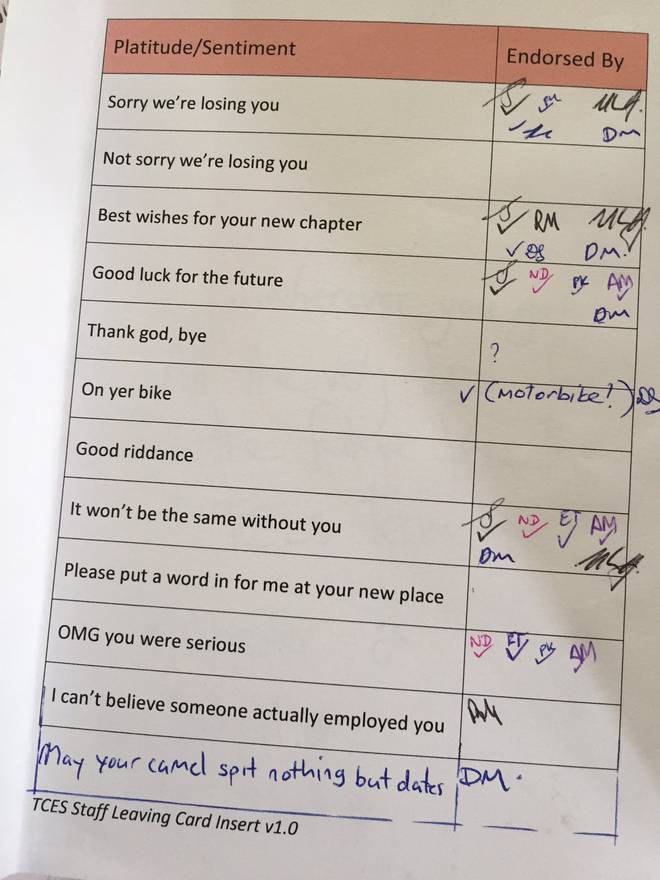 Platitude/Sentiment Endorsed By
Sorry we're losing you
DM
Not sorry we're losing you
Best wishes for your new chapter RM
DS DM.
Good luck for the future ND PK AM
DM
Thank god, bye ?
On yer bike (motorbike!) DS
Good riddance
It won't be the same without you ND ET AM
DM
Please put a word in for me at your new place
OMG you were serious ND ET PK AM
I can't believe someone actually employed you RM
May your camel spit nothing but dates DM.
TCES Staff Leaving Card Insert v1.0